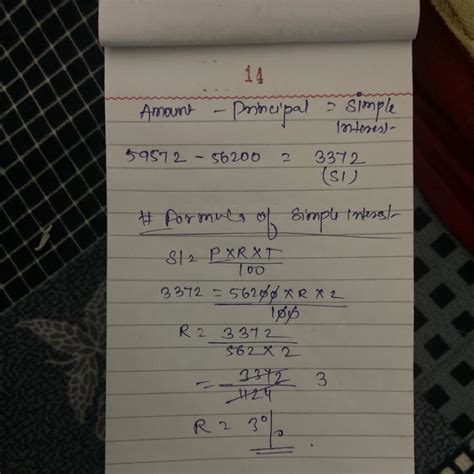 14
Amount - Principal = Simple
Interest
59572 - 56200 = 3372
(SI)
# Formula of Simple Interest
SI = P×R×T
100
3372 = 56200 × R × 2
100
R = 3372
562 × 2
= 3372 3
1124
R = 3%